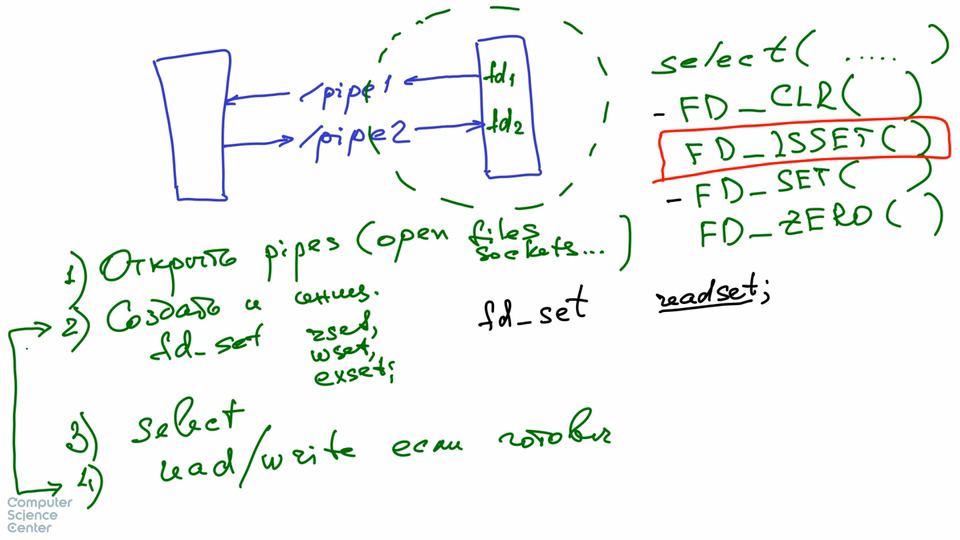 /pipe1
/pipe2
fd1
fd2
select( ..... )
- FD_CLR( )
FD_ISSET( )
- FD_SET( )
FD_ZERO( )
1) Открыть pipes (open files sockets...)
2) Создать и иниц.
fd_set rset,
wset,
exset;
fd_set readset;
3) select
4) read/write если готовы
Computer
Science
Center